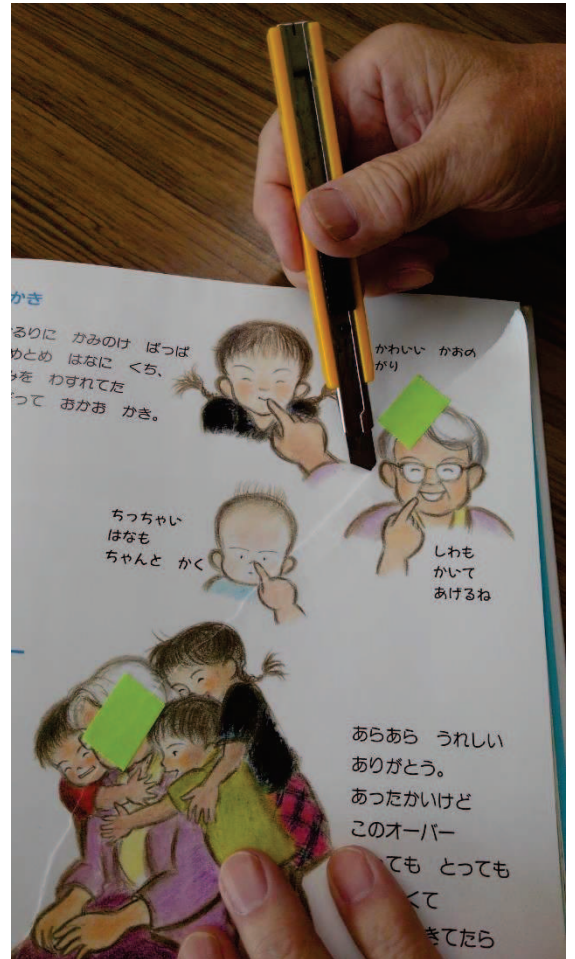 かき
るりに かみのけ ぱっぱ
めとめ はなに くち、
を わすれてた
って おかお かき。
かわいい かおの
がり
ちっちゃい
はなも
ちゃんと かく
しわも
かいて
あげるね
あらあら うれしい
ありがとう。
あったかいけど
このオーバー
ても とっても
くて
きてたら